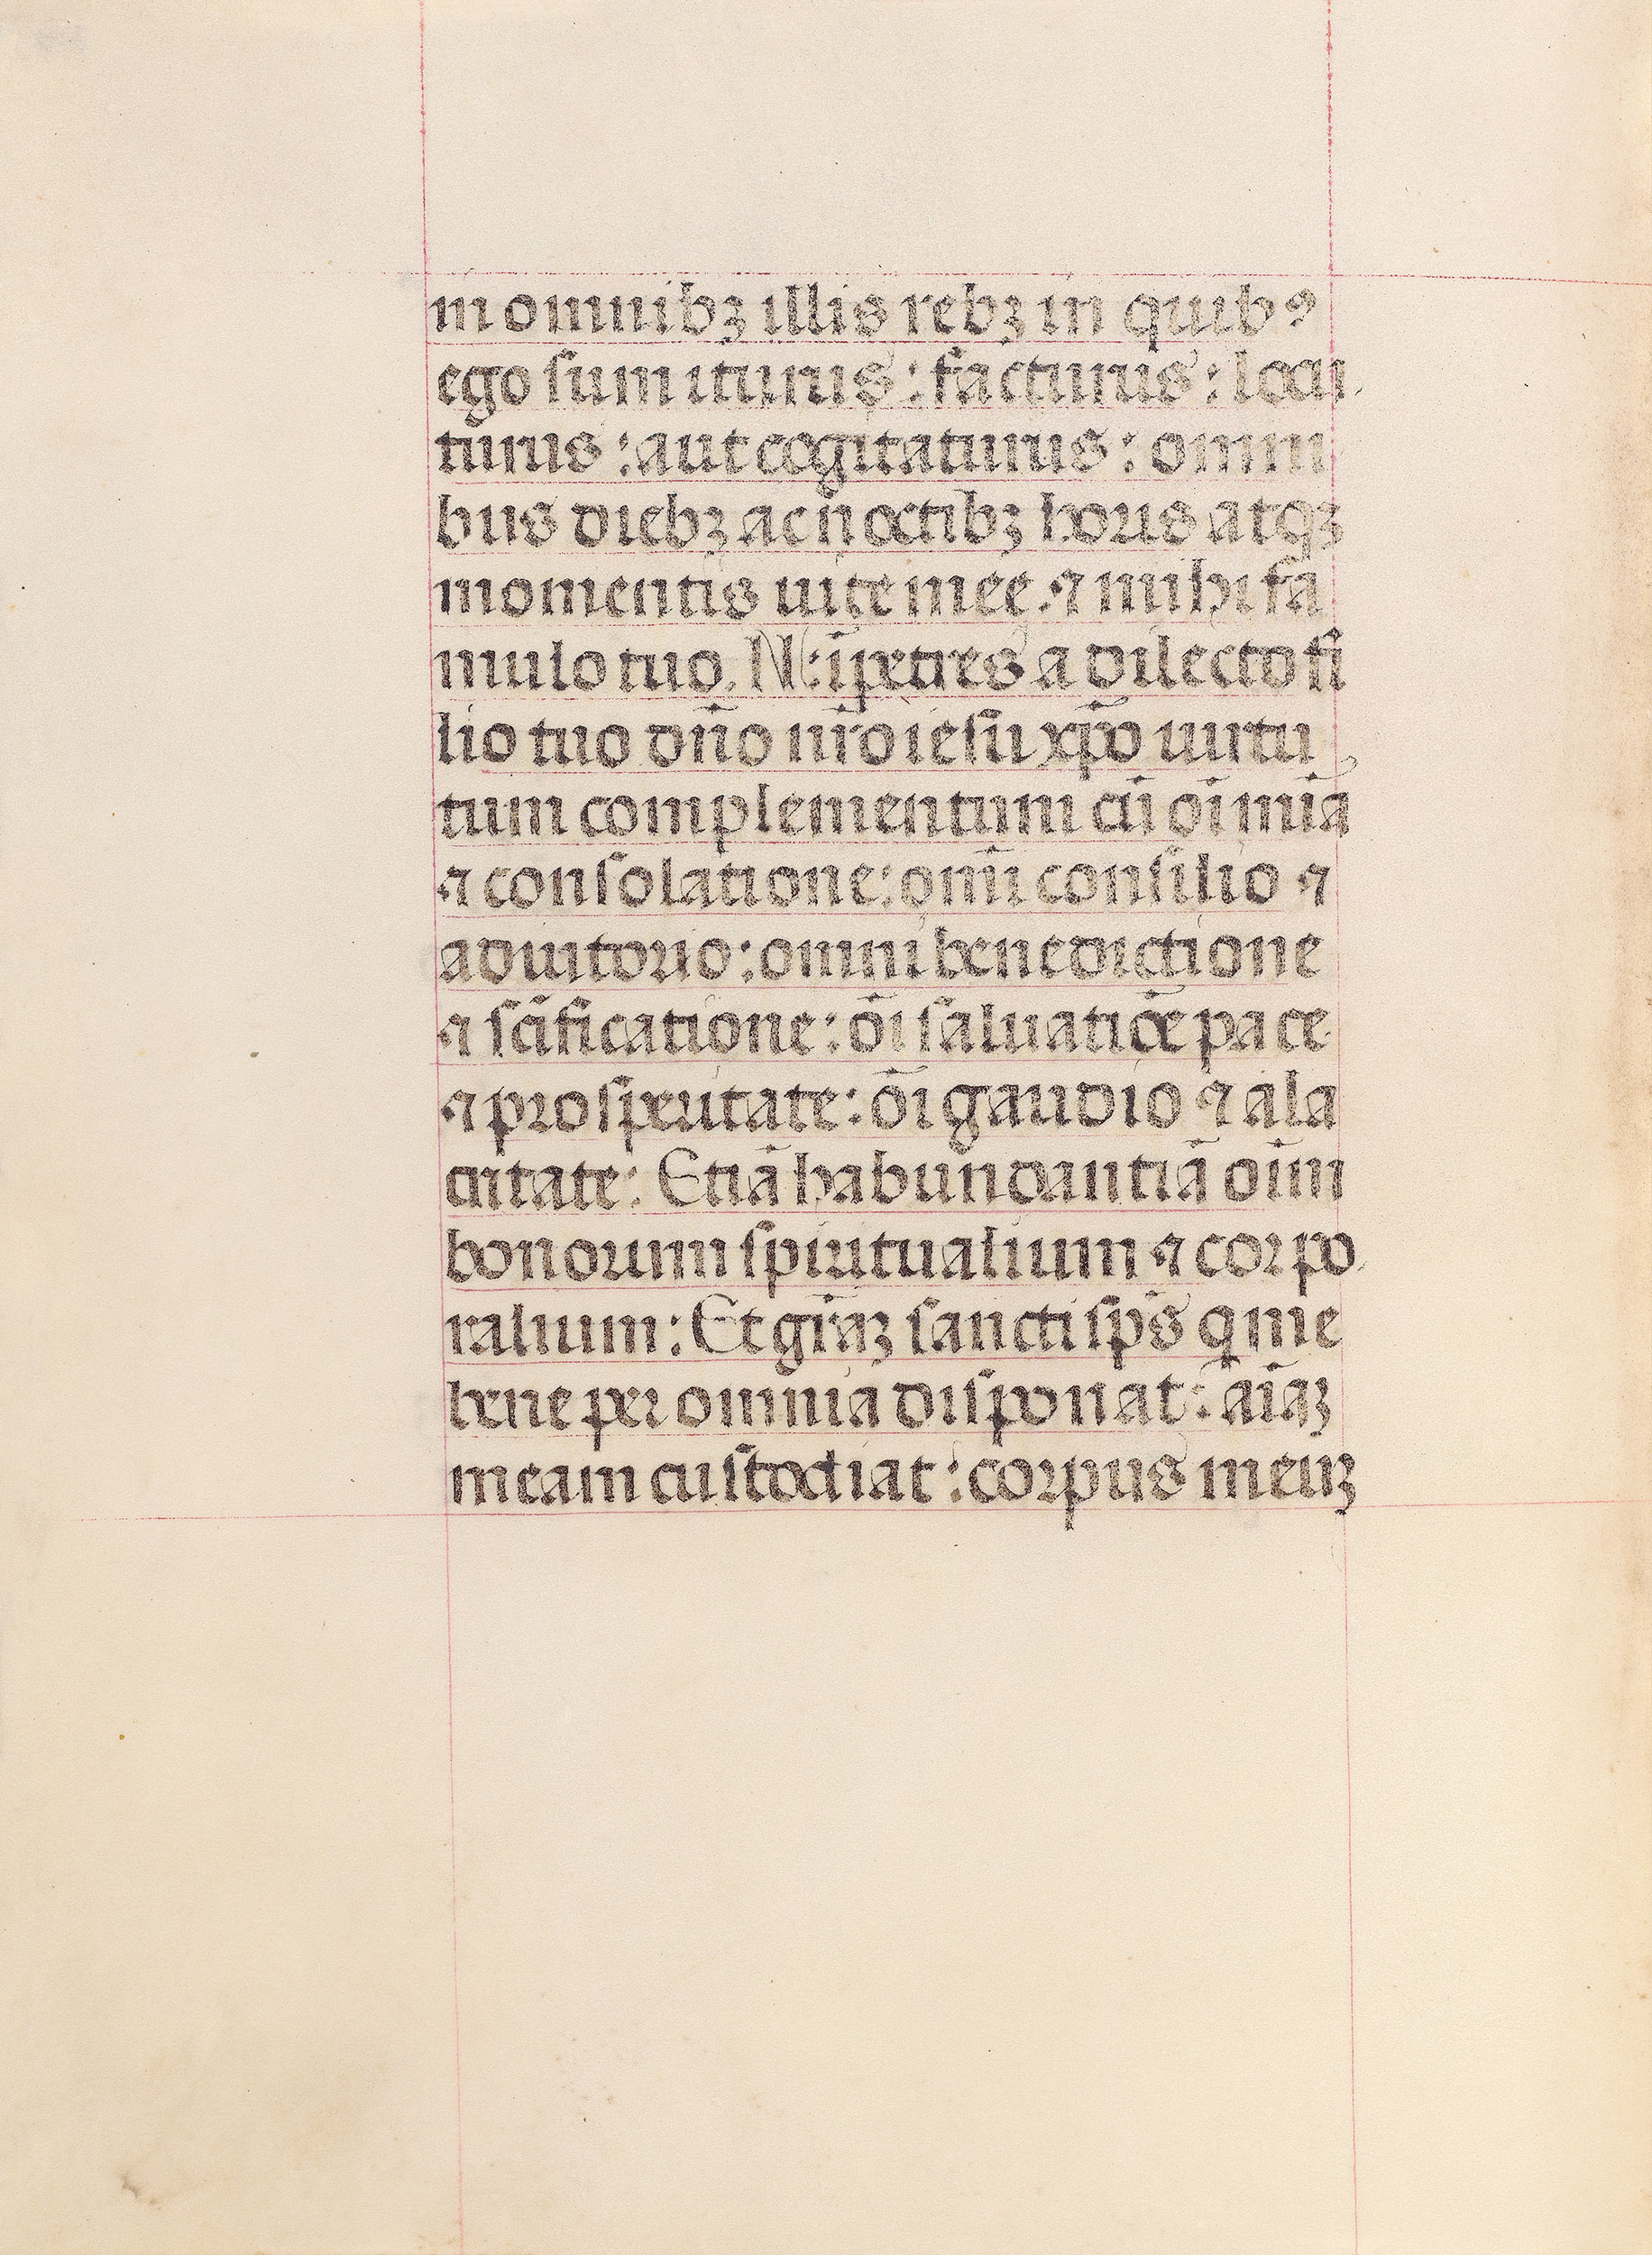 in omnibꝫ illis rebꝫ in quibꝰ
ego sum iturus : facturus : locu
turus : aut cogitaturus : omni
bus diebꝫ ac noctibꝫ horis atqꝫ
momentis uite mee . ⁊ mihi fa
mulo tuo . N : ip̄etres a dilecto fi
lio tuo dn̄o nr̄o iesu xp̄o uirtu
tum complementum cū oī mīa
⁊ consolatione : om̄i consilio ⁊
adiutorio : omni benedictione
⁊ sc̄ificatione : oī saluatiōe pace
⁊ prosperitate : oī gaudio ⁊ ala
critate : Etiā habundantiā oīm
bonorum spiritualium ⁊ corpo
ralium : Et gr̄aꝫ sancti sp̄s q̄ me
bene per omnia disponat : aīaꝫ
meam custodiat : corpus meuꝫ